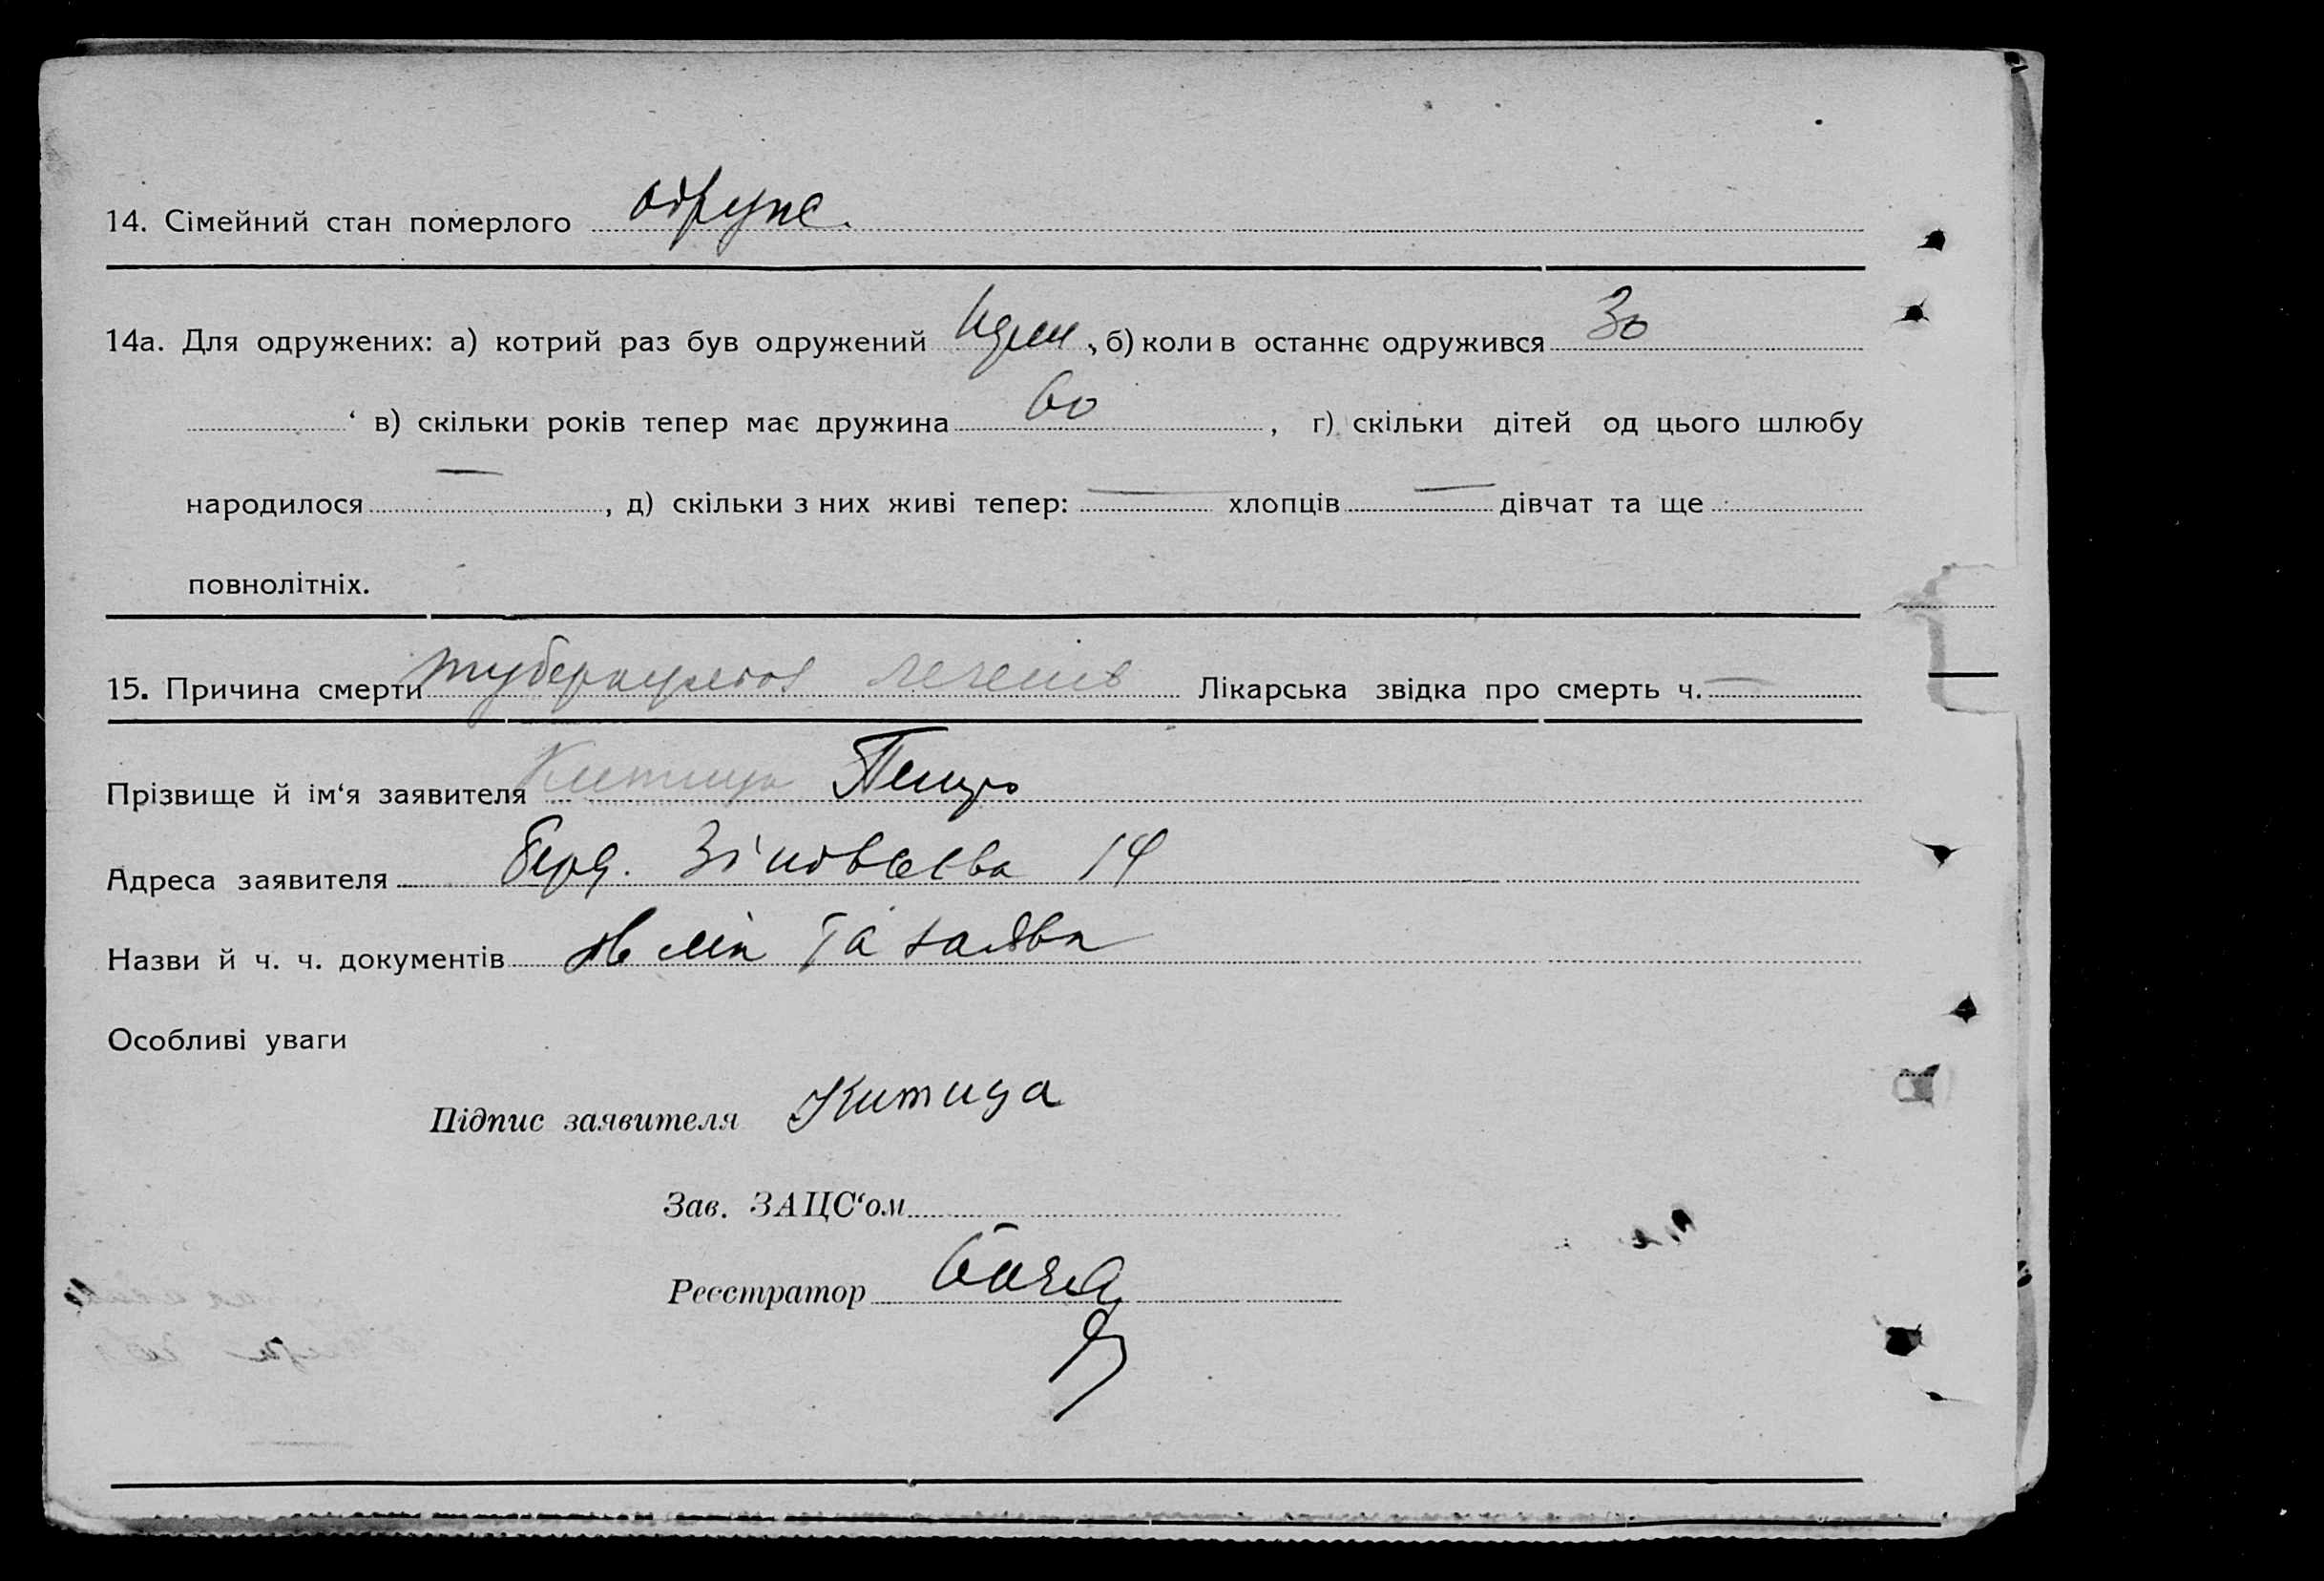 14. Сімейний стан померлого одруж.
14а. Для одружених: а) котрий раз був одружений , б) коли в останнє одружився 30
в) скільки років тепер має дружина 60, г) скільки дітей од цього шлюбу
народилося —, д) скільки з них живі тепер: — хлопців — дівчат та ще
повнолітніх.
15. Причина смерти туберкульоз легенів Лікарська звідка про смерть ч. —
Прізвище й ім‘я заявителя Китица Петро
Адреса заявителя Берд. Зіновьева 14
Назви й ч. ч. документів та заява
Особливі уваги
Підпис заявителя Китица
Зав. ЗАЦС‘ом
Реєстратор